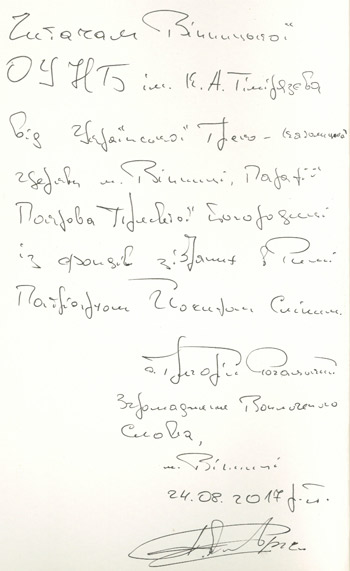 Читачам Вінницької
ОУНБ ім. К. А. Тімірязєва
від Української Греко-католицької
церкви м. Вінниці, Парафії
Покрова Пресвятої Богородиці
із фондів зібраних в Римі
Патріархом Йосифом Сліпим.
о. Григорій Рогацький
Згромадження Воплоченого
Слова,
м. Вінниці
24.08.2017 р.Б.